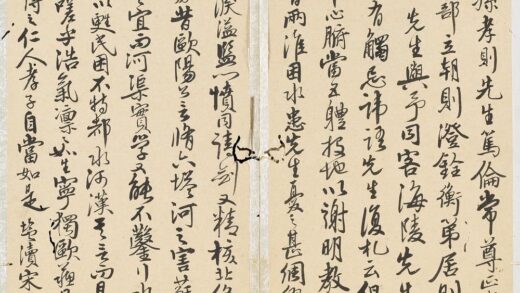 孫孝則先生篤倫常尊正
部立朝則澄銓衡第居則
先生與予同客海陵先生
有觸忌諱語先生復札云但
心腑當五體投地以謝明教
昔兩淮困水患先生憂之甚
溢監心憤同請劍又精核北條
昔歐陽公之脩六塔河之害蘇
宜而河渠實學又能不鑿
以甦民困不特都水河
嗟乎浩氣凜生寧獨歐蘇
之仁人孝子自當如是 瀆宋